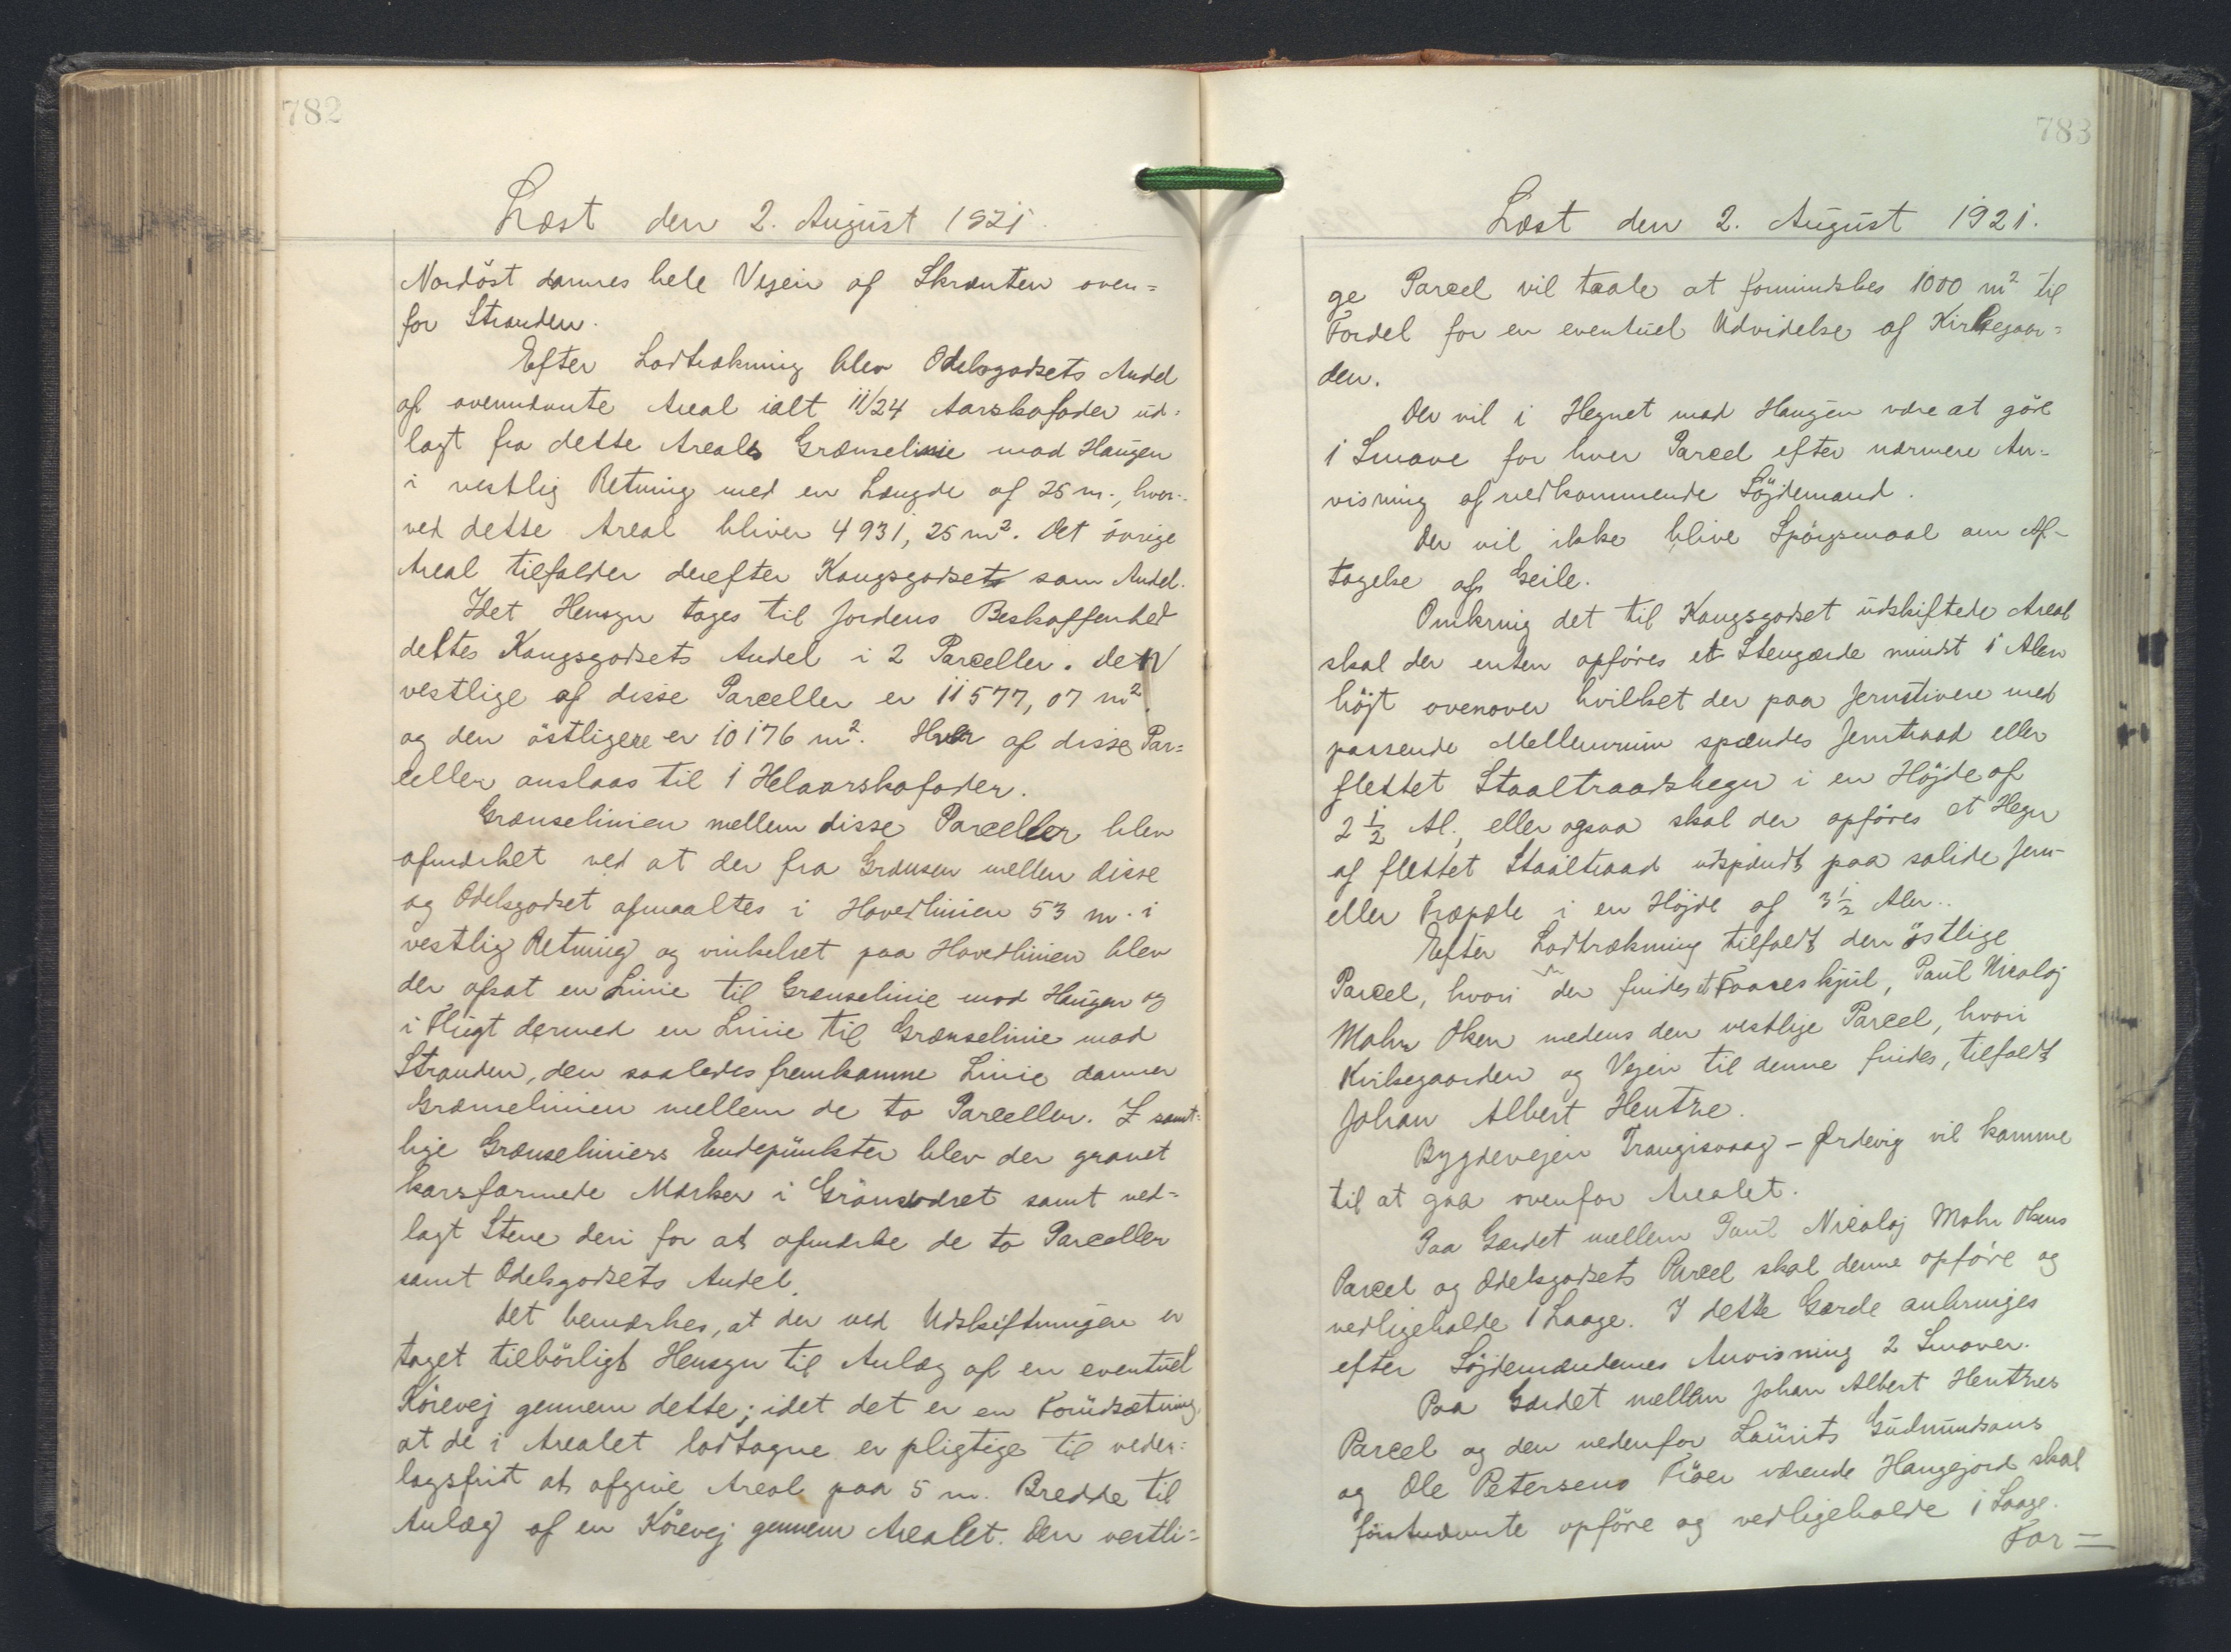 782
Læst den 2. August 1921.
Nordöst dannes hele Vejen af Skrænten oven=
for Stranden.
Efter Lodtrækning blev Odelsgodsets Andel
af ovennævnte Areal ialt 11/24 Aarskofoder ud=
lagt fra dette Areals Grænselinie mod Haugen
i vestlig Retning med en Længde af 25 m., hvor-
ved dette Areal bliver 4931,25 m². Det övrige
Areal tilfalder derefter Kongsgodset som Andel.
Idet Hensyn tages til Jordens Beskaffenhed
deltes Kongsgodsets Andel i 2 Parceller. Den
vestlige af disse Parceller er 11577,07 m²
og den östligere er 10176 m². Hver af disse Par=
celler anslaas til 1 Helaarskofoder.
Grænselinien mellem disse Parceller blev
afmærket ved at der fra Grænsen mellem disse
og Odelsgodset afmaaltes i Hovedlinien 53 m. i
vestlig Retning og vinkelret paa Hovedlinien blev
der afsat en Linie til Grænselinie mod Haugen og
i Flugt dermed en Linie til Grænselinie mod
Stranden, den saaledes fremkomne Linie danner
Grænselinien mellem de to Parceller. I samt=
lige Grænseliniers Endepunkter blev der gravet
korsformede Mærker i Grönsværet samt ned=
lagt Stene deri for at afmærke de to Parceller
samt Odelsgodsets Andel.
Det bemærkes, at der ved Udskiftningen er
taget tilbörligt Hensyn til Anlæg af en eventuel
Körevej gennem dette; idet det er en Forudsætning,
at de i Arealet lodtagne er pligtige til veder=
lagsfrit at afgive Areal paa 5 m. Bredde til
Anlæg af en Körevej gennem Arealet. Den vestli=
783
Læst den 2. August 1921.
ge Parcel vil taale at formindskes 1000 m² til
Fordel for en eventuel Udvidelse af Kirkegaar=
den.
Der vil i Hegnet mod Haugen være at göre
1 Smave for hver Parcel efter nærmere An=
visning af vedkommende Söjdemand.
Der vil ikke blive Spörgsmaal om Af-
tagelse af Geile.
Omkring det til Kongsgodset udskiftede Areal
skal der enten opföres et Stengærde mindst 1 Alen
höjt ovenover hvilket der paa Jernstivere med
passende Mellemrum spændes Jerntraad eller
flettet Staaltraadshegn i en Höjde af
2 1/2 Al., eller ogsaa skal der opföres et Hegn
af flettet Staaltraad udspændt paa solide Jern-
eller Træpæle i en Höjde af 3 1/2 Alen..
Efter Lodtrækning tilfaldt den östlige
Parcel, hvori der findes et Faareskjul, Paul Nicolaj
Mohr Olsen medens den vestlige Parcel, hvori
Kirkegaarden og Vejen til denne findes, tilfaldt
Johan Albert Hentze.
Bygdevejen Trangisvaag - Ørdevig vil komme
til at gaa ovenfor Arealet.
Paa Gærdet mellem Paul Nicolaj Mohr Olsens
Parcel og Odelsgodsets Parcel skal denne opföre og
vedligeholde 1 Laage. I dette Gærde anbringes
efter Söjdemændenes Anvisning 2 Smover.
Paa Gærdet mellem Johan Albert Hentzes
Parcel og den nedenfor Laurits Gudmundsons
og Ole Petersens Fröer værende Haugejord skal
förstnævnte opföre og vedligeholde 1 Laage.
For=